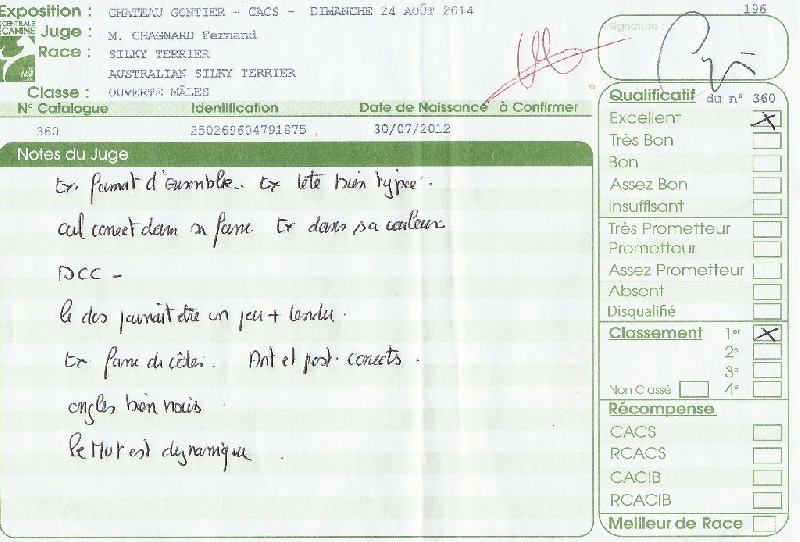 Exposition : CHATEAU GONTIER - CACS - DIMANCHE 24 AOÛT 2014
196
CENTRALE
CANINE
Juge : M. CHAGNARD Fernand
Race : SILKY TERRIER
AUSTRALIAN SILKY TERRIER
Classe : OUVERTE MÂLES
Signature :
N° Catalogue Identification Date de Naissance à Confirmer
360 250269604791875 30/07/2012
Notes du Juge
Ex. format d'ensemble. Ex tête bien typée.
œil correct dans sa forme Ex dans sa couleur
DCC -
le dos pourrait être un peu + tendu.
Ex forme de côtes. Ant et post. corrects.
ongles bien noirs
le Mvt est dynamique.
Qualificatif du n° 360
Excellent X
Très Bon
Bon
Assez Bon
Insuffisant
Très Prometteur
Prometteur
Assez Prometteur
Absent
Disqualifié
Classement 1er X
2e
3e
Non Classé 4e
Récompense
CACS
RCACS
CACIB
RCACIB
Meilleur de Race